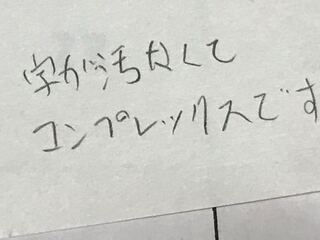 字が汚なくて
コンプレックスです